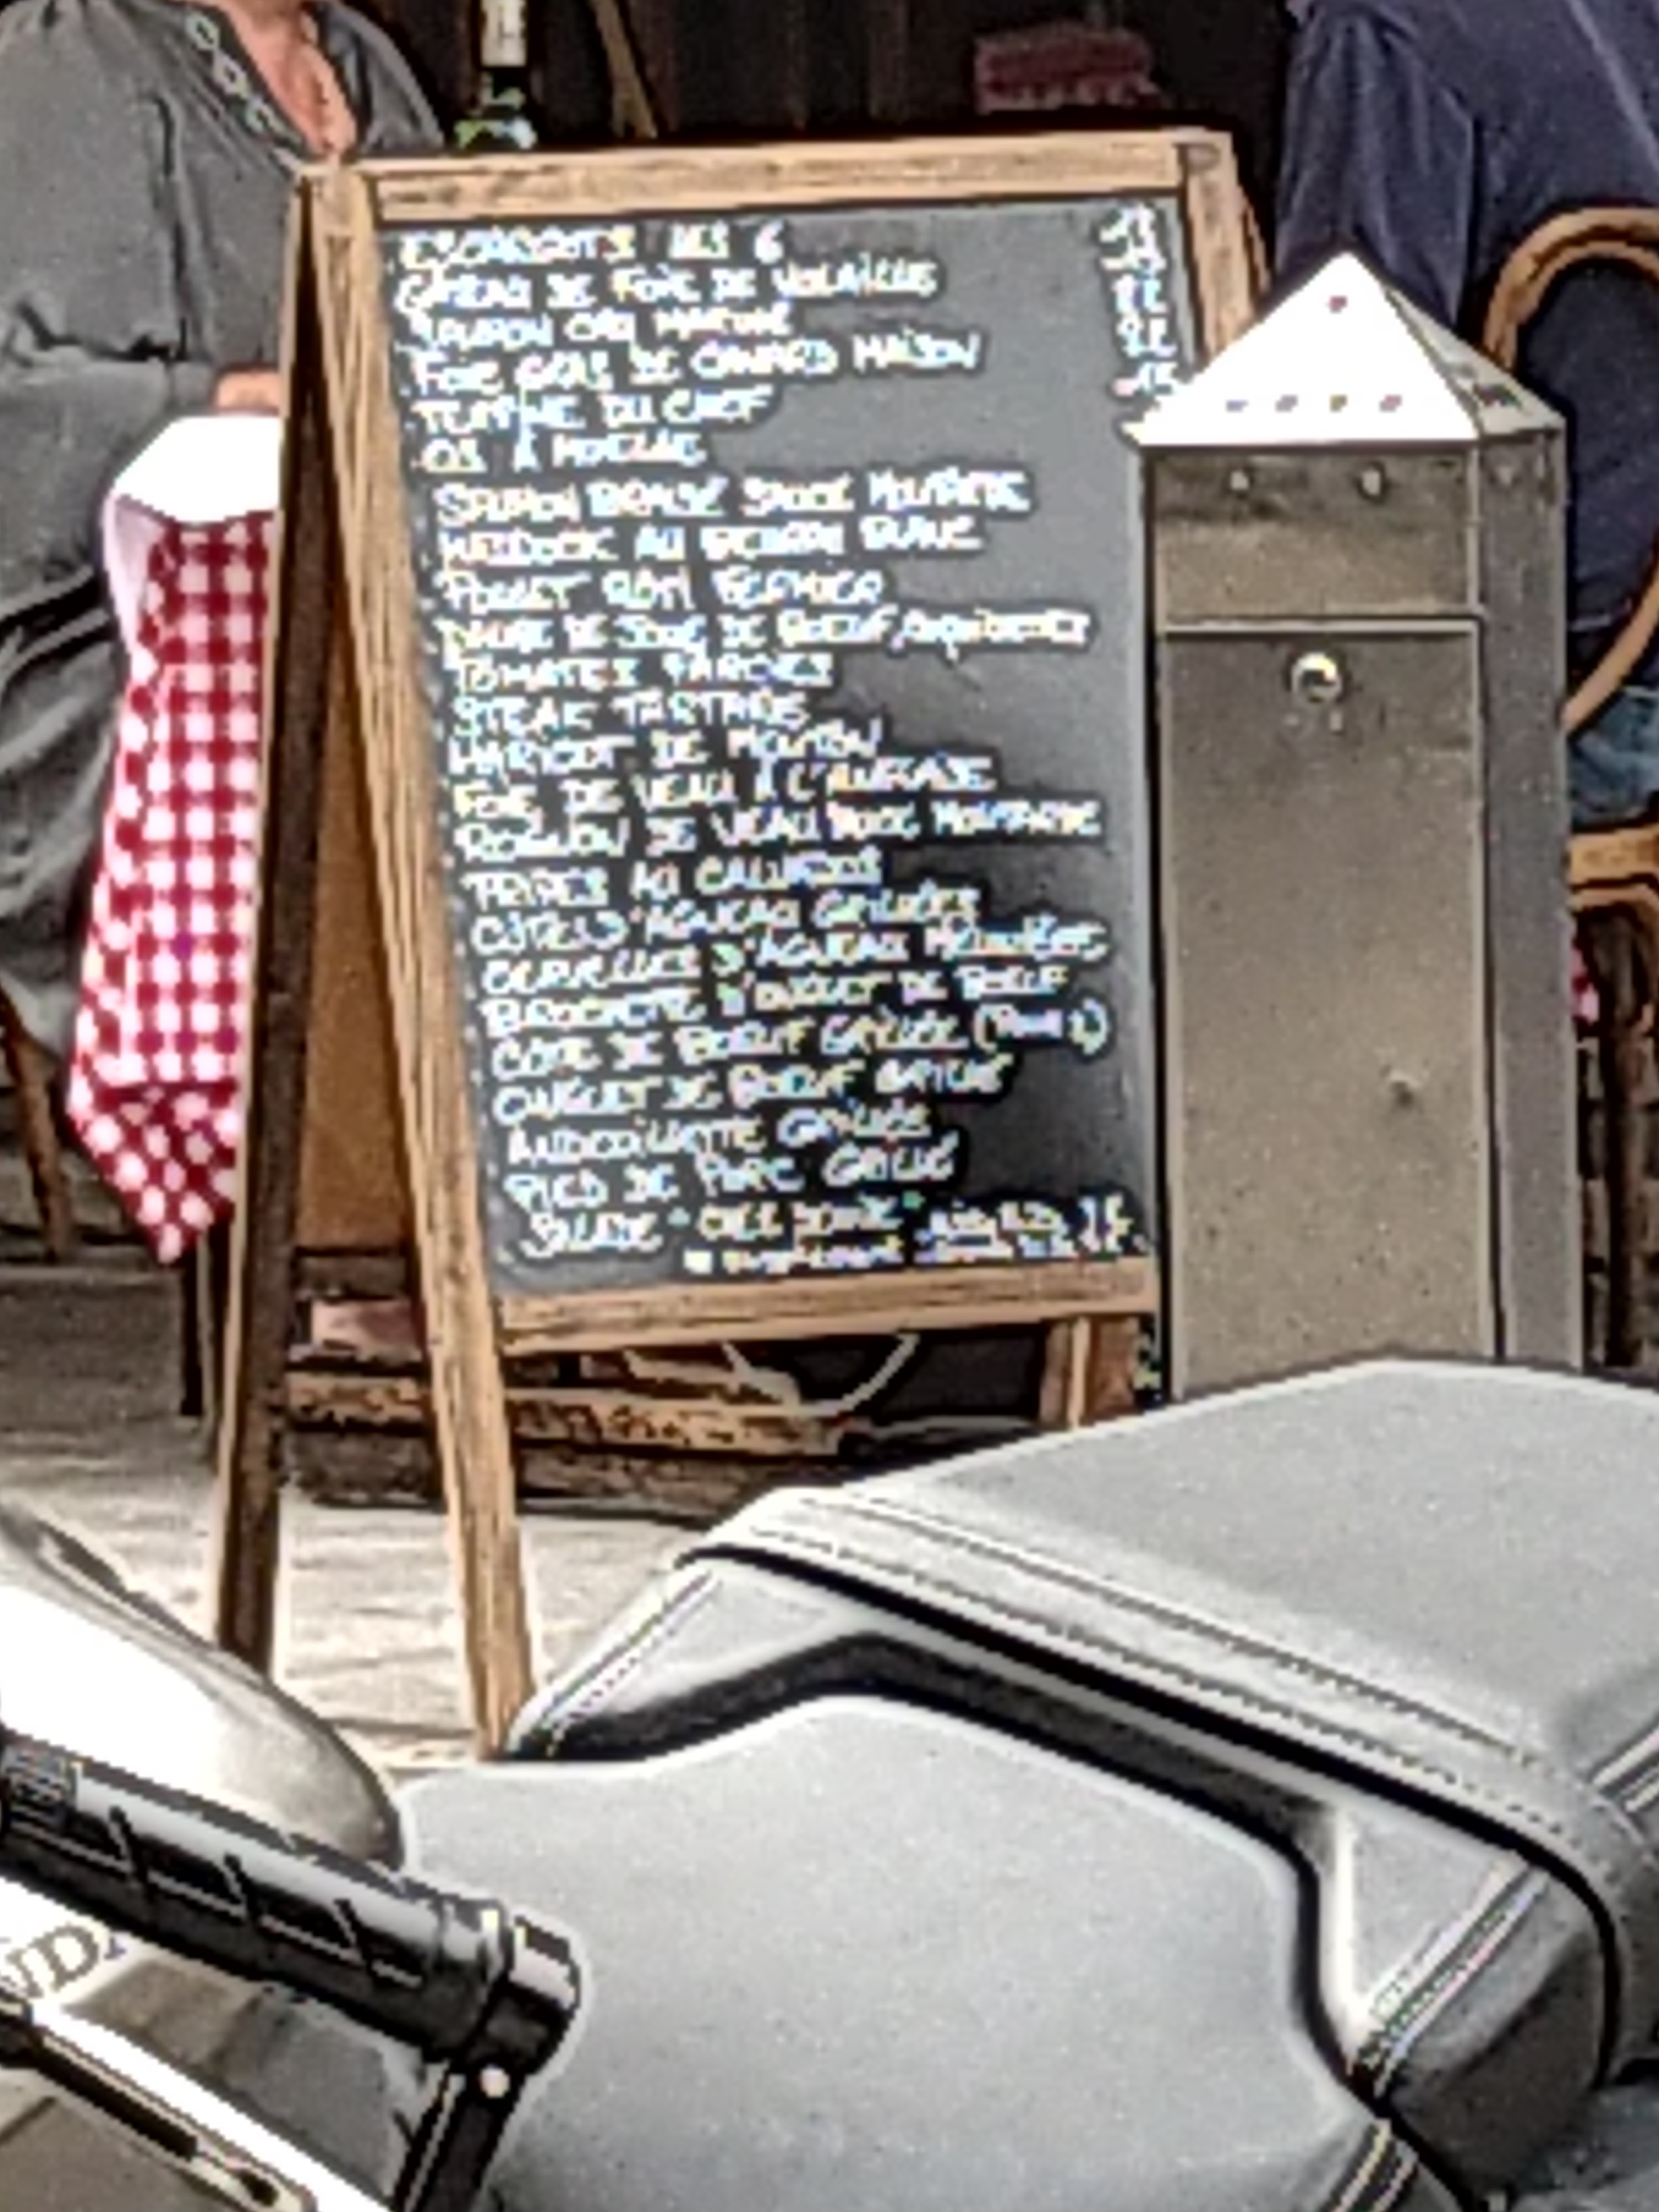 ESCARGOTS LES 6
GÂTEAU DE FOIE DE VOLAILLES
SAUMON CRU MARINÉ
FOIE GRAS DE CANARD MAISON
TERRINE DU CHEF
OS À MOELLE
SAUMON BRAISÉ SAUCE MOUTARDE
HADDOCK AU BEURRE BLANC
POULET RÔTI FERMIER
DAUBE DE JOUE DE BOEUF
TOMATES FARCIES
STEAK TARTARE
HARICOT DE MOUTON
FOIE DE VEAU À L'
ROGNON DE VEAU SAUCE MOUTARDE
TRIPES AU CALVADOS
CÔTES D'AGNEAU GRILLÉES
CERVELLES D'AGNEAU MEUNIÈRE
BROCHETTE D'ONGLET DE BOEUF
CÔTE DE BOEUF GRILLÉE (POUR 2)
ONGLET DE BOEUF GRILLÉ
ANDOUILLETTE GRILLÉE
PIED DE PORC GRILLÉ
SALADE
supplément